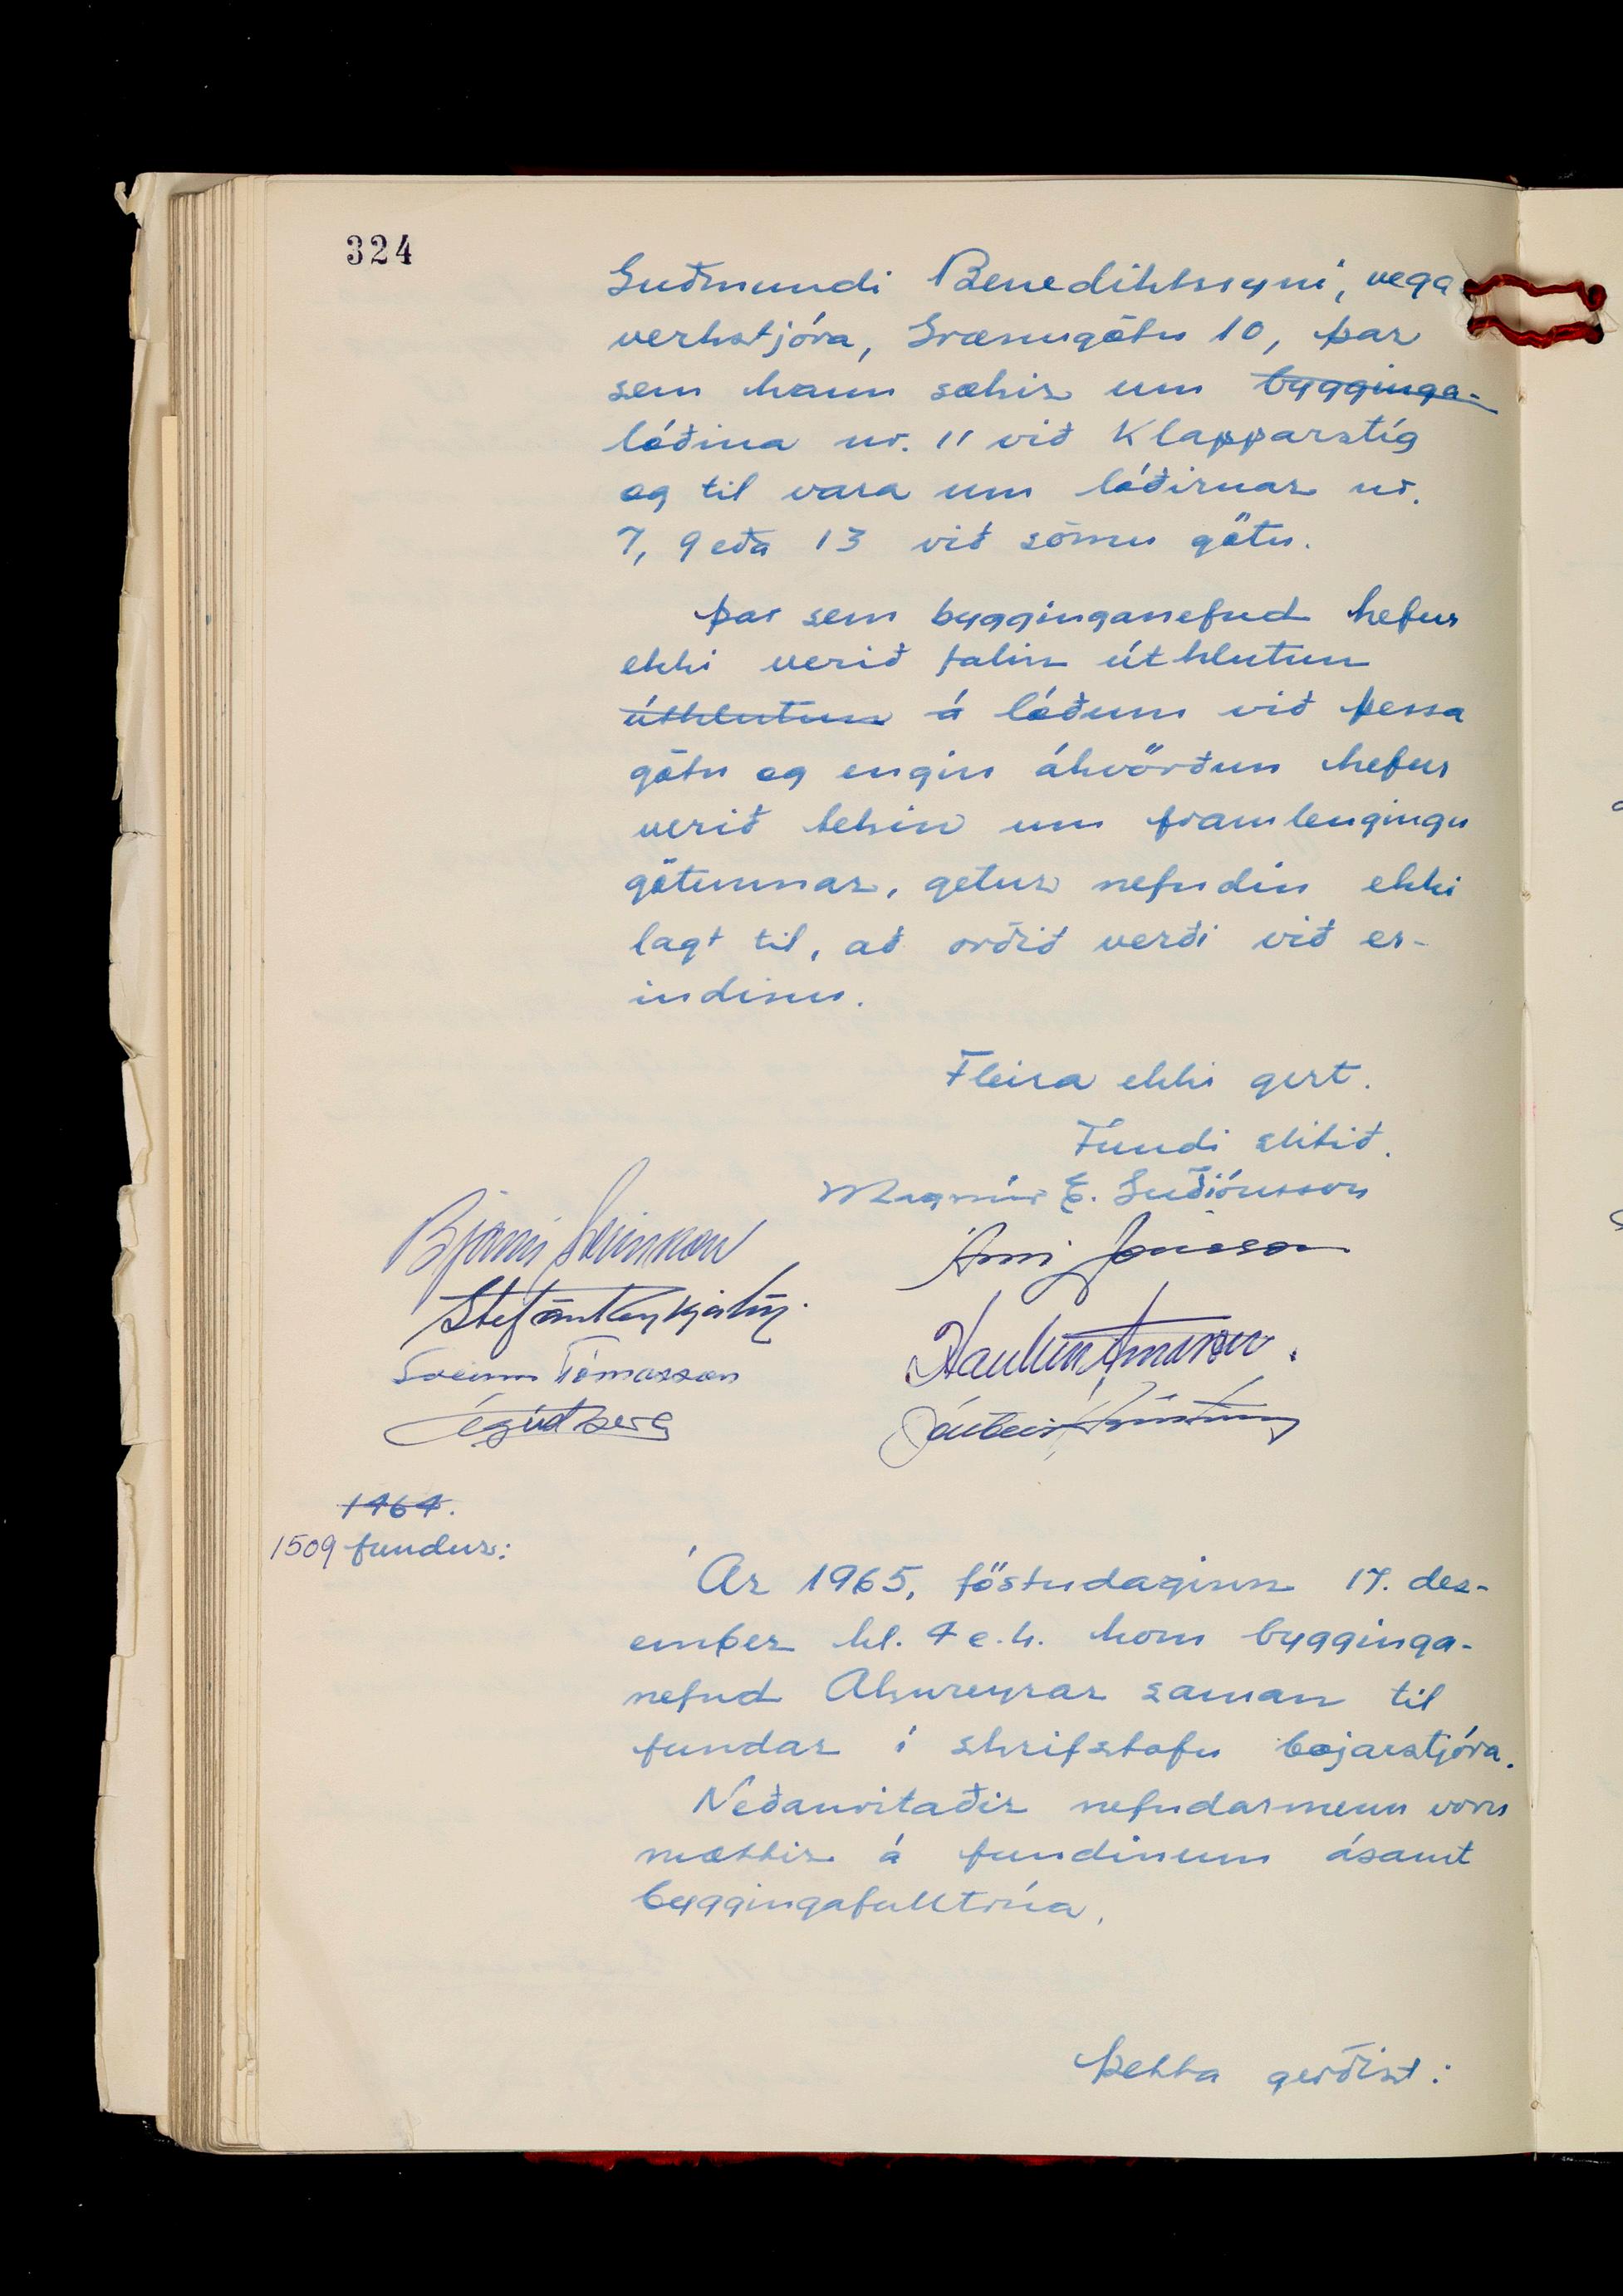 324
Guðmundi Benediktssyni, vega-
verkstjóra, Grænugötu 10, þar
sem hann sækir um bygginga-
lóðina nr. 11 við Klapparstíg
og til vara um lóðirnar nr.
7, 9 eða 13 við sömu götu.
Þar sem bygginganefnd hefur
ekki verið falin úthlutun
úthlutun á lóðum við þessa
götu og engin ákvörðun hefur
verið tekin um framlengingu
götunnar, getur nefndin ekki
lagt til, að orðið verði við er-
indinu.
Fleira ekki gert.
Fundi slitið.
Magnús E. Guðjónsson
Bjarni Sveinsson
Árni Jónsson
Stefán Reykjalín
Haukur Árnason
Sveinn Tómasson
1464.
1509 fundur:
Ár 1965, föstudaginn 17. des-
ember kl. 4 e.h. kom bygginga-
nefnd Akureyrar saman til
fundar í skrifstofu bæjarstjóra.
Neðanritaðir nefndarmenn voru
mættir á fundinum ásamt
byggingafulltrúa.
Þetta gerðist: